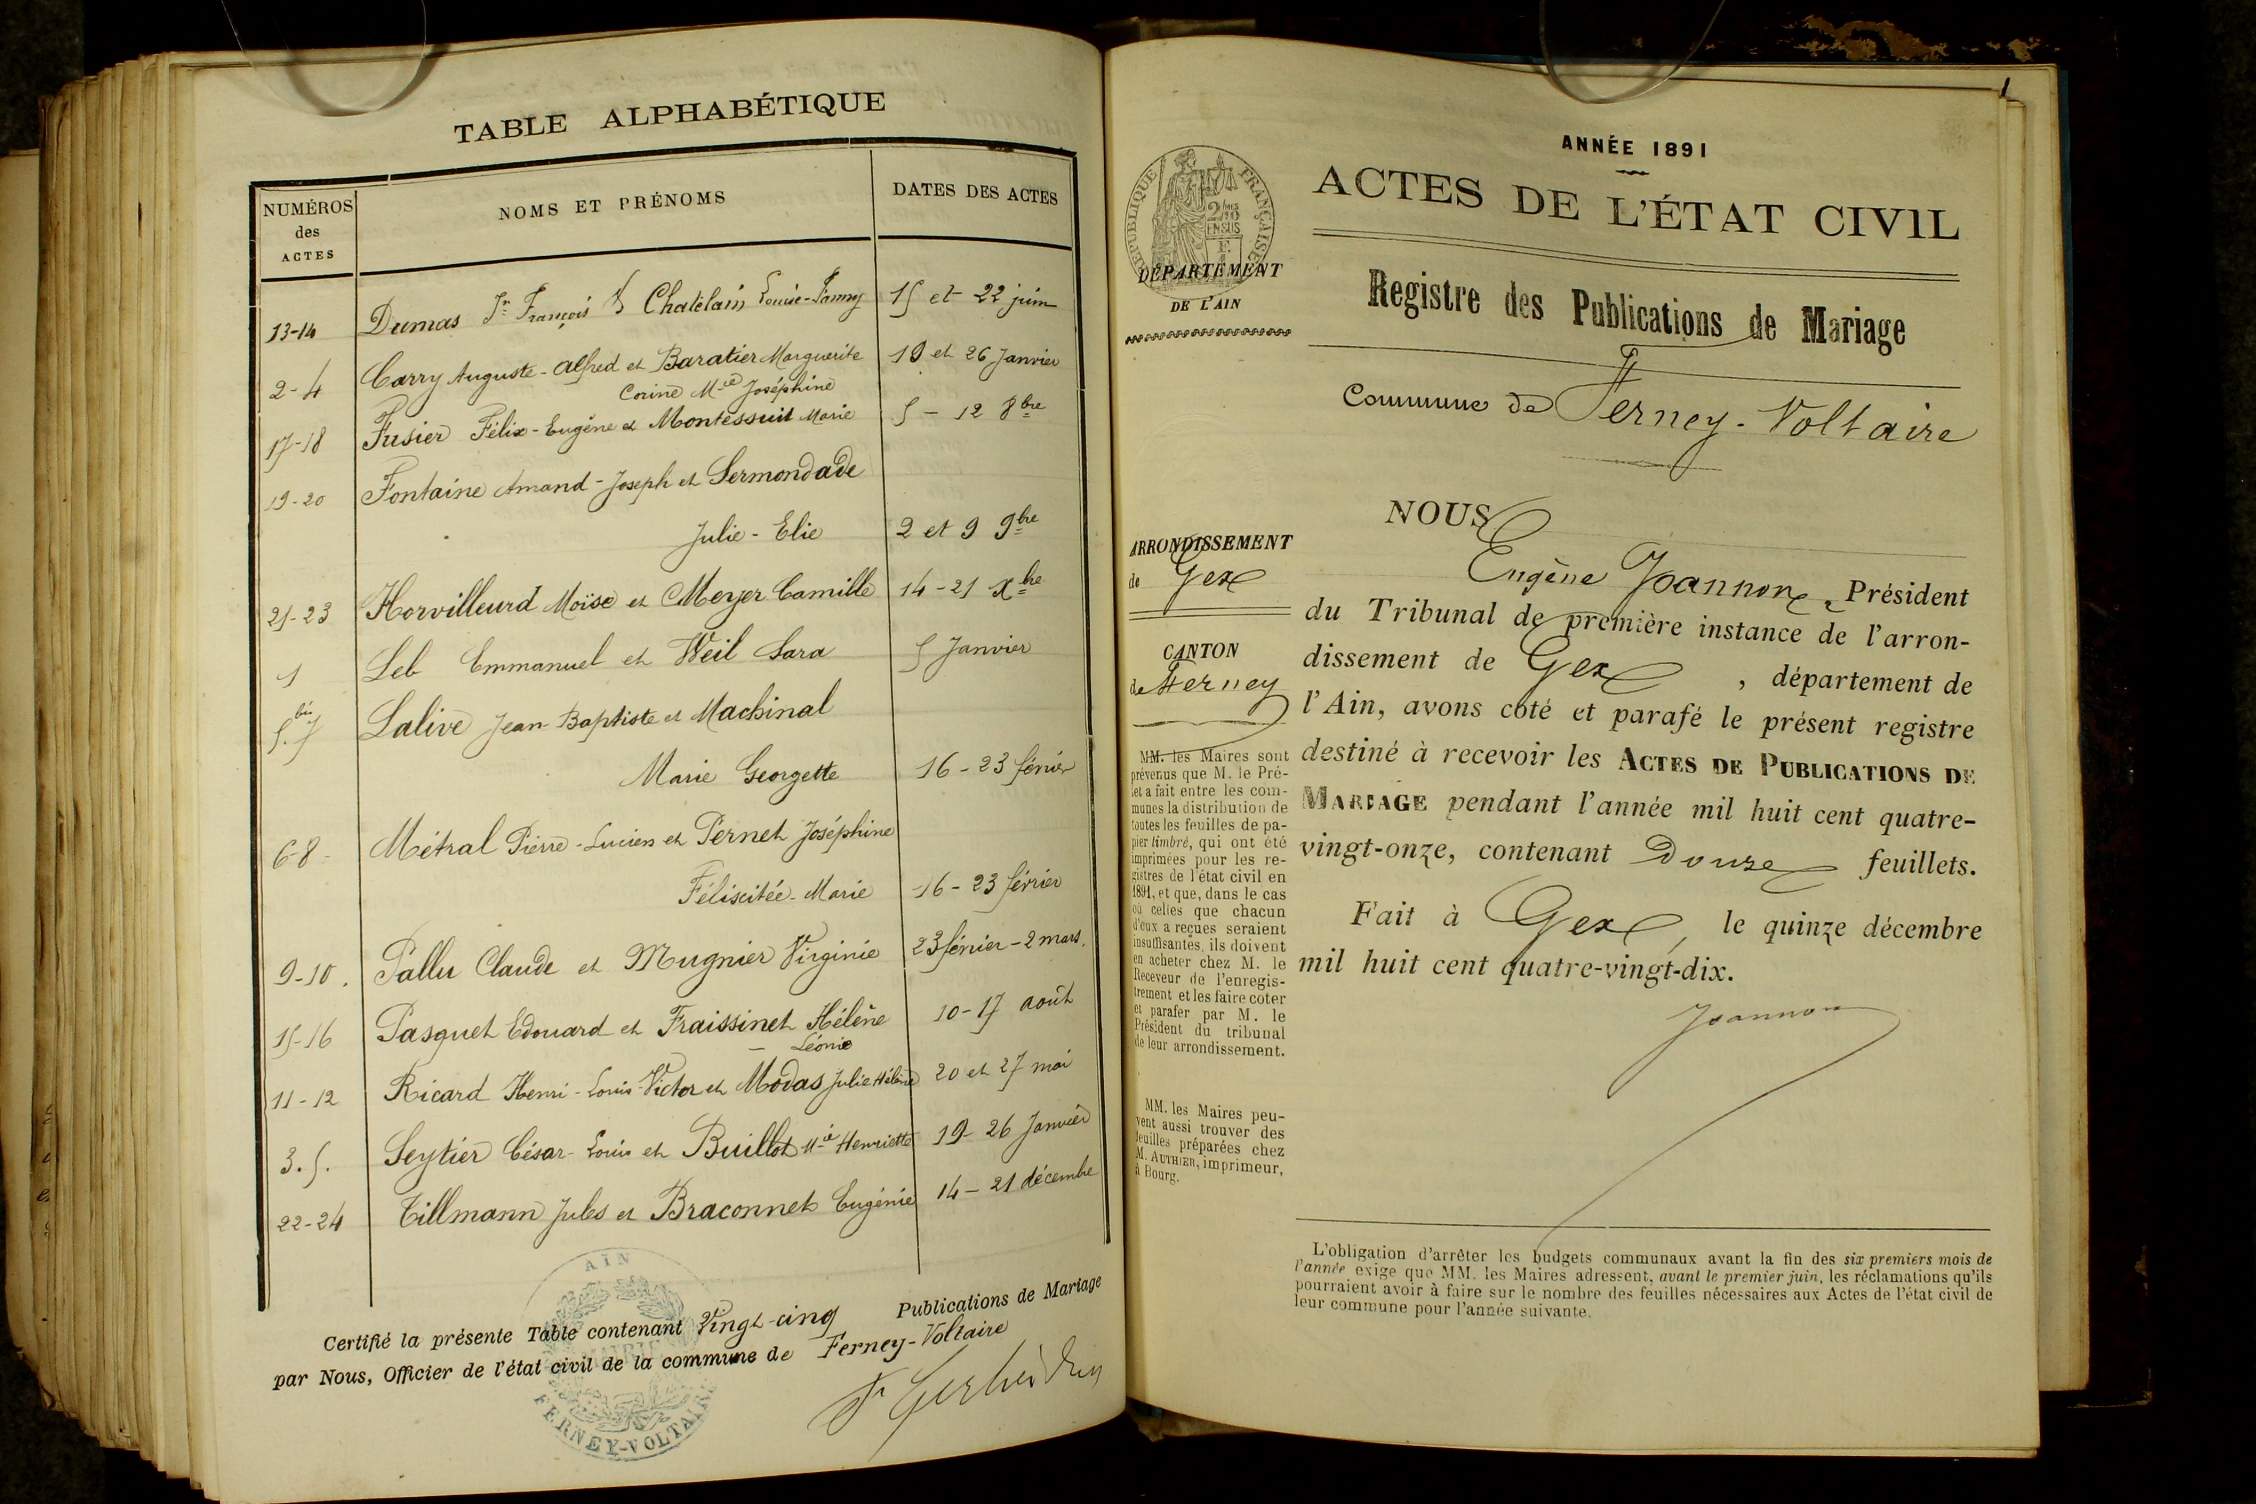 TABLE ALPHABÉTIQUE
NUMÉROS des ACTES
NOMS ET PRÉNOMS
DATES DES ACTES
13-14 Dumas Jn François & Chatelain Louise-Fanny 15 et 22 juin
2-4 Carry Auguste-Alfred et Baratier Marguerite 19 et 26 Janvier
Corine Mie Joséphine
17-18 Fusier Félix-Eugène et Montessuit Marie 5 - 12 8bre
19-20 Fontaine Amand-Joseph et Sermondade
Julie-Elie 2 et 9 9bre
21-23 Horvilleurd Moïse et Meyer Camille 14-21 Xbre
1 Leb Emmanuel et Weil Sara 5 Janvier
5.bis 7 Lalive Jean Baptiste et Machinal
Marie Georgette 16-23 février
6-8- Métral Pierre-Lucien et Pernet Joséphine
Féliscitée-Marie 16-23 février
9-10. Pallu Claude et Mugnier Virginie 23 février-2 mars.
15-16 Pasquet Edouard et Fraissinet Hélène 10-17 août
Léonie
11-12 Ricard Henri-Louis-Victor et Modas Julie Hélène 20 et 27 mai
3.5. Seytier César-Louis et Buillot Mie Henriette 19-26 Janvier
22-24 Tillmann Jules et Braconnet Eugénie 14-21 décembre
Certifié la présente Table contenant Vingt-cinq Publications de Mariage
par Nous, Officier de l'état civil de la commune de Ferney-Voltaire
AIN
MAIRIE
FERNEY-VOLTAIRE
1
ANNÉE 1891
ACTES DE L'ÉTAT CIVIL
RÉPUBLIQUE FRANÇAISE
2/10mes
EN SUS
DÉPARTEMENT
DE L'AIN
Registre des Publications de Mariage
Commune de Ferney-Voltaire
ARRONDISSEMENT
de Gex
CANTON
de Ferney
MM. les Maires sont
prévenus que M. le Pré-
fet a fait entre les com-
munes la distribution de
toutes les feuilles de pa-
pier timbré, qui ont été
imprimées pour les re-
gistres de l'état civil en
1891, et que, dans le cas
où celles que chacun
d'eux a reçues seraient
insuffisantes, ils doivent
en acheter chez M. le
Receveur de l'enregis-
trement et les faire coter
et parafer par M. le
Président du tribunal
de leur arrondissement.
MM. les Maires peu-
vent aussi trouver des
feuilles préparées chez
M. AUTHIER, imprimeur,
à Bourg.
NOUS
Eugène Joannon, Président
du Tribunal de première instance de l'arron-
dissement de Gex, département de
l'Ain, avons coté et parafé le présent registre
destiné à recevoir les ACTES DE PUBLICATIONS DE
MARIAGE pendant l'année mil huit cent quatre-
vingt-onze, contenant Douze feuillets.
Fait à Gex, le quinze décembre
mil huit cent quatre-vingt-dix.
Joannon
L'obligation d'arrêter les budgets communaux avant la fin des six premiers mois de
l'année exige que MM. les Maires adressent, avant le premier juin, les réclamations qu'ils
pourraient avoir à faire sur le nombre des feuilles nécessaires aux Actes de l'état civil de
leur commune pour l'année suivante.